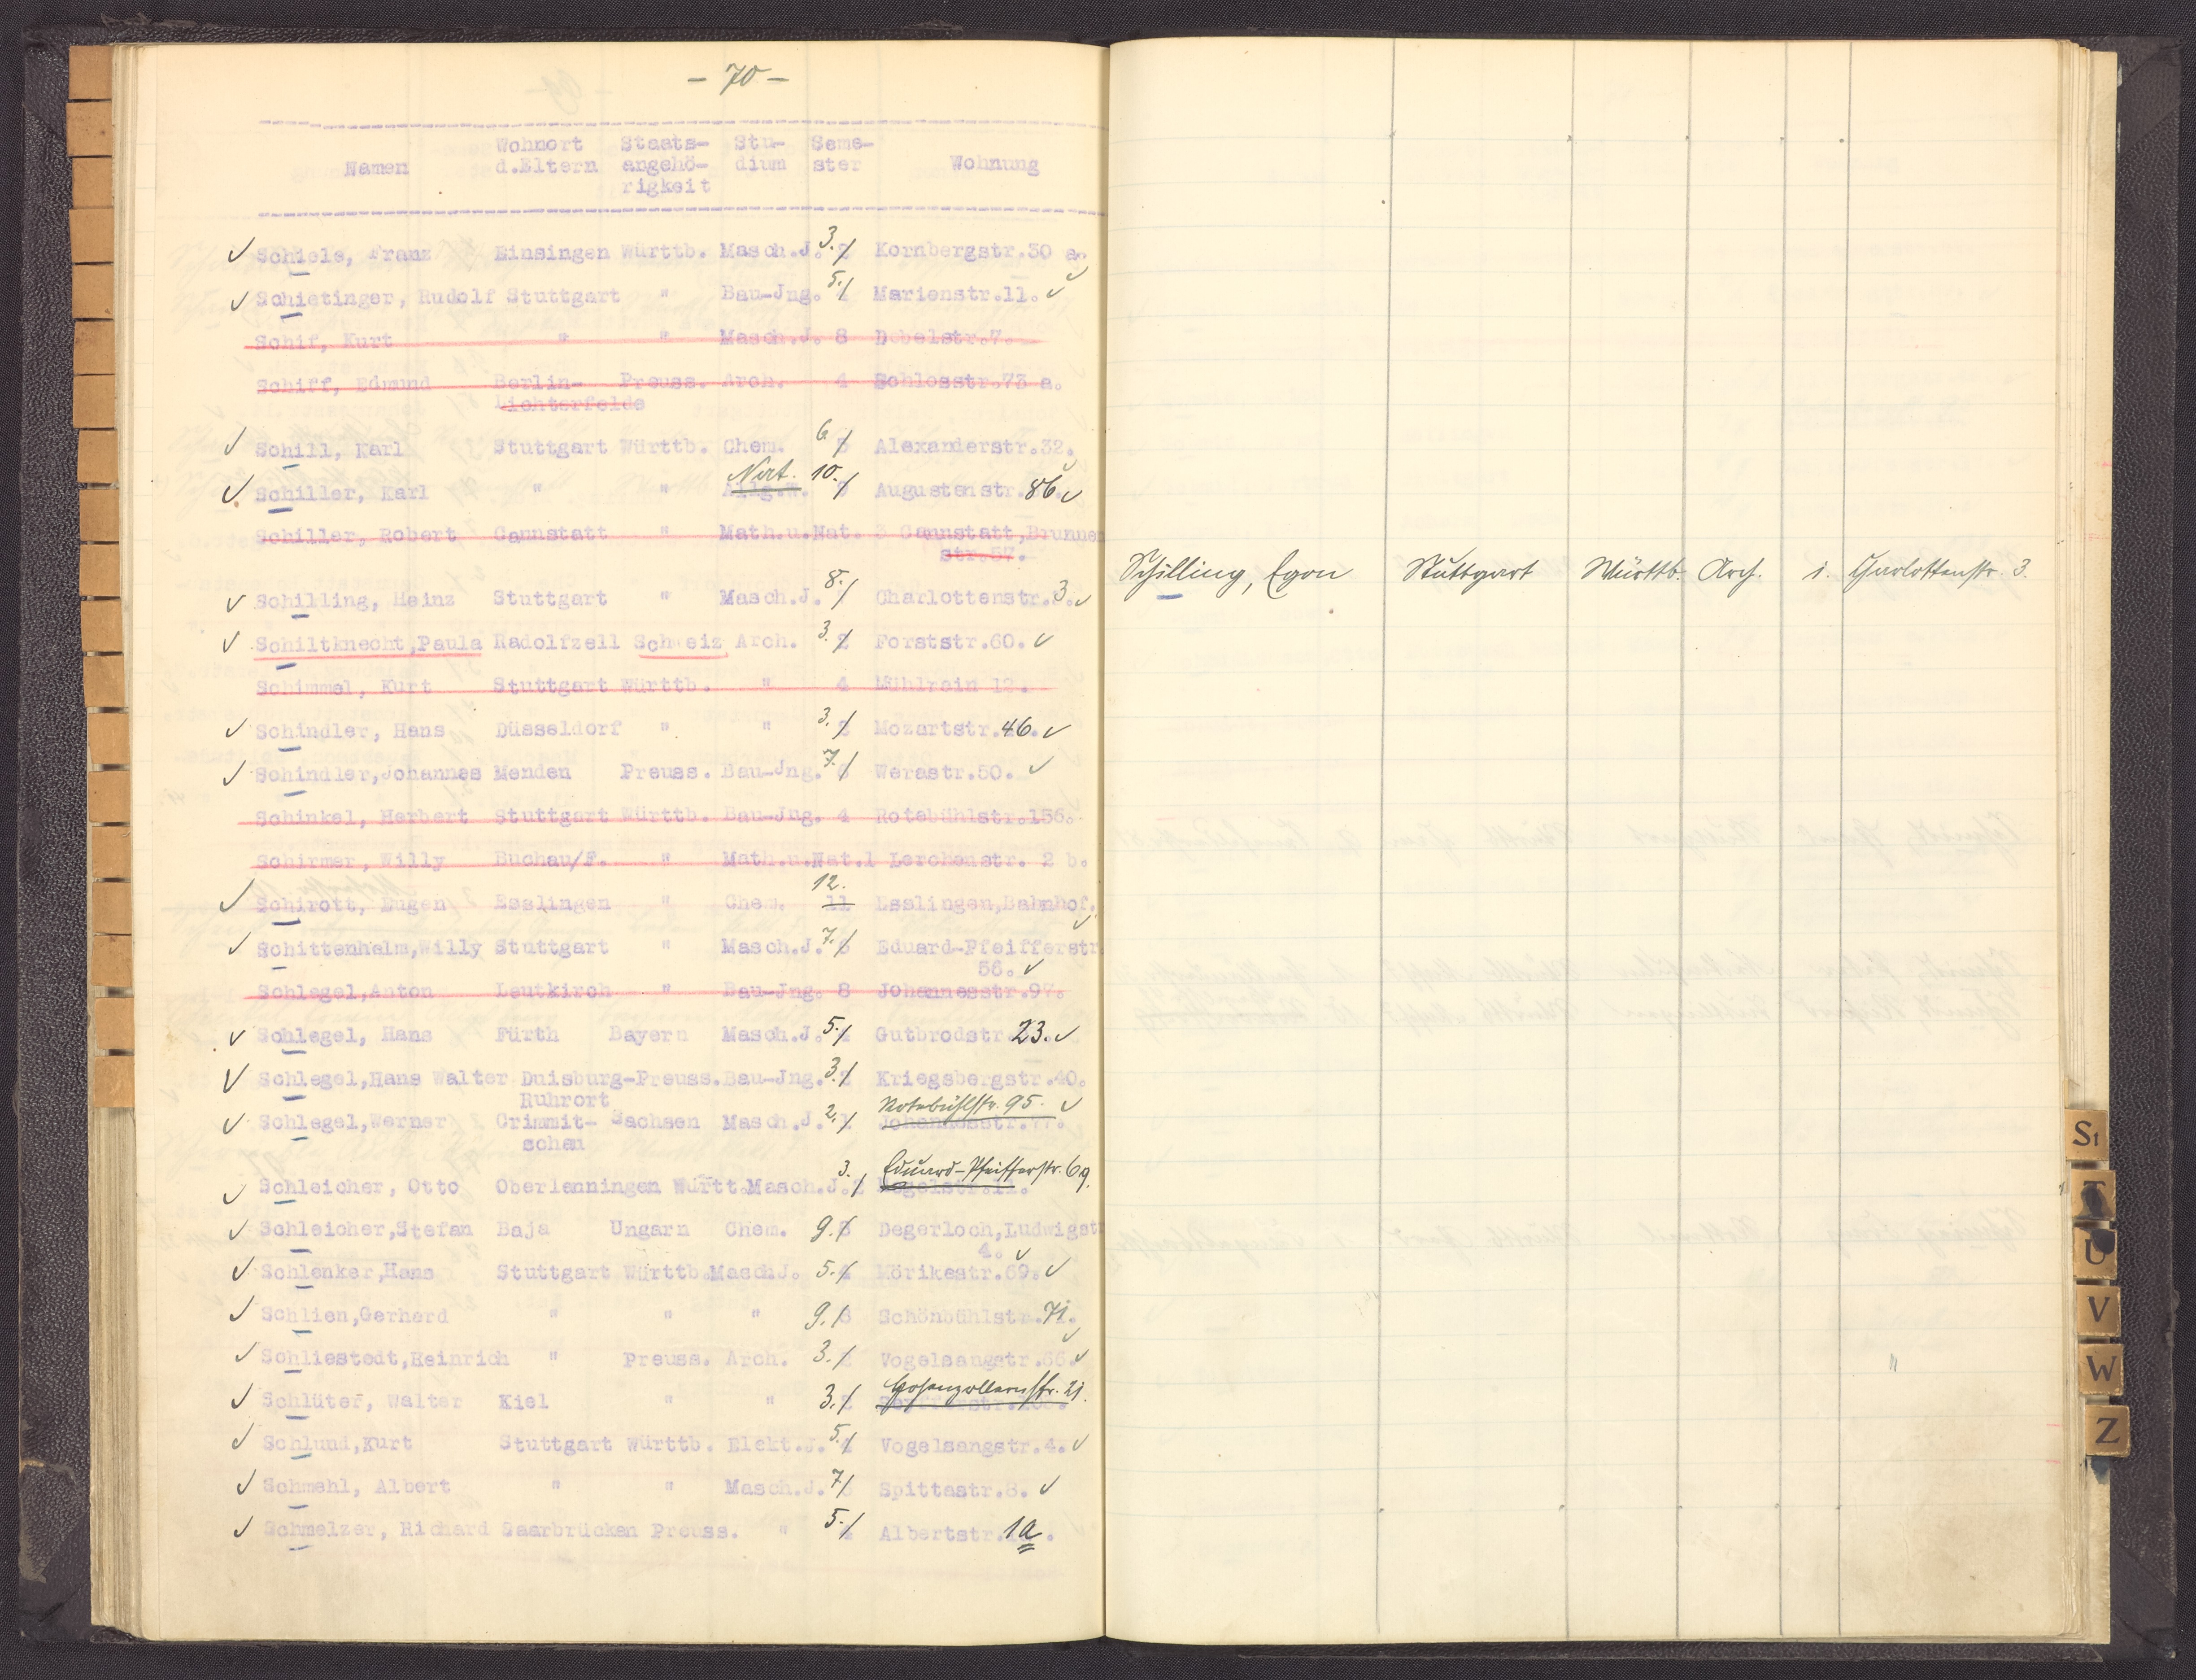 - 70 -
Namen Wohnort d.Eltern Staats-angehö-rigkeit Stu-dium Seme-ster Wohnung
Schiele, Franz Einsingen Württb. Masch.J. 3. 2 Kornbergstr.30 a.
Schietinger, Rudolf Stuttgart " Bau-Jng. 5. 4 Marienstr.11.
Schif, Kurt " " Masch.J. 8 Dobelstr.7.
Schiff, Edmund Berlin- Preuss. Arch. 4 Schlosstr.73 a.
Lichterfelde
Schill, Karl Stuttgart Württb. Chem. 6 5 Alexanderstr.32.
Nat. 10.
Schiller, Karl " " Allg.W. Augustenstr.86
Schiller, Robert Cannstatt " Math.u.Nat. 3 Cannstatt,Brunnen
str.57.
Schilling, Heinz Stuttgart " Masch.J. 8. Charlottenstr.3.
Schiltknecht,Paula Radolfzell Schweiz Arch. 3. 2 Forststr.60.
Schimmel, Kurt Stuttgart Württb. " 4 Mühlrain 12.
Schindler, Hans Düsseldorf " " 3. 2 Mozartstr.46.
Schindler,Johannes Menden Preuss. Bau-Jng. 7. 6 Werastr.50.
Schinkel, Herbert Stuttgart Württb. Bau-Jng. 4 Rotebühlstr.156.
Schirmer, Willy Buchau/F. " Math.u.Nat.1 Lerchenstr. 2 b.
12.
Schirott, Eugen Esslingen " Chem. 11 Esslingen,Bahnhof.
Schittenhelm,Willy Stuttgart " Masch.J. 7. 6 Eduard-Pfeifferstr
56.
Schlegel,Anton Leutkirch " Bau-Jng. 8 Johannesstr.97.
Schlegel, Hans Fürth Bayern Masch.J. 5. 4 Gutbrodstr.23.
Schlegel,Hans Walter Duisburg-Preuss.Bau-Jng. 3. 2 Kriegsbergstr.40.
Ruhrort
Rotebühlstr. 95.
Schlegel,Werner Crimmit- Sachsen Masch.J. 2. 1 Johannesstr.77.
schau
Eduard-Pfeifferstr. 69.
Schleicher, Otto Oberlenningen Württ.Masch.J. 3. 2 Hegelstr.11.
Schleicher,Stefan Baja Ungarn Chem. 9. 8 Degerloch,Ludwigstr
4.
Schlenker,Hans Stuttgart Württb.Masch J. 5. 4 Mörikestr.69.
Schlien,Gerhard " " " 9. 8 Schönbühlstr.71.
Schliestedt,Heinrich " Preuss. Arch. 3. 2 Vogelsangstr.66.
Hohenzollernstr. 21.
Schlüter, Walter Kiel " " 3. 2
Schlund,Kurt Stuttgart Württb. Elekt.J. 5. 4 Vogelsangstr.4.
Schmehl, Albert " " Masch.J. 7 6 Spittastr.8.
Schmelzer, Richard Saarbrücken Preuss. " 5. 4 Albertstr.1a.
Schilling, Egon Stuttgart Württb. Arch. 1. Charlottenstr. 3.
St
T
U
V
W
Z